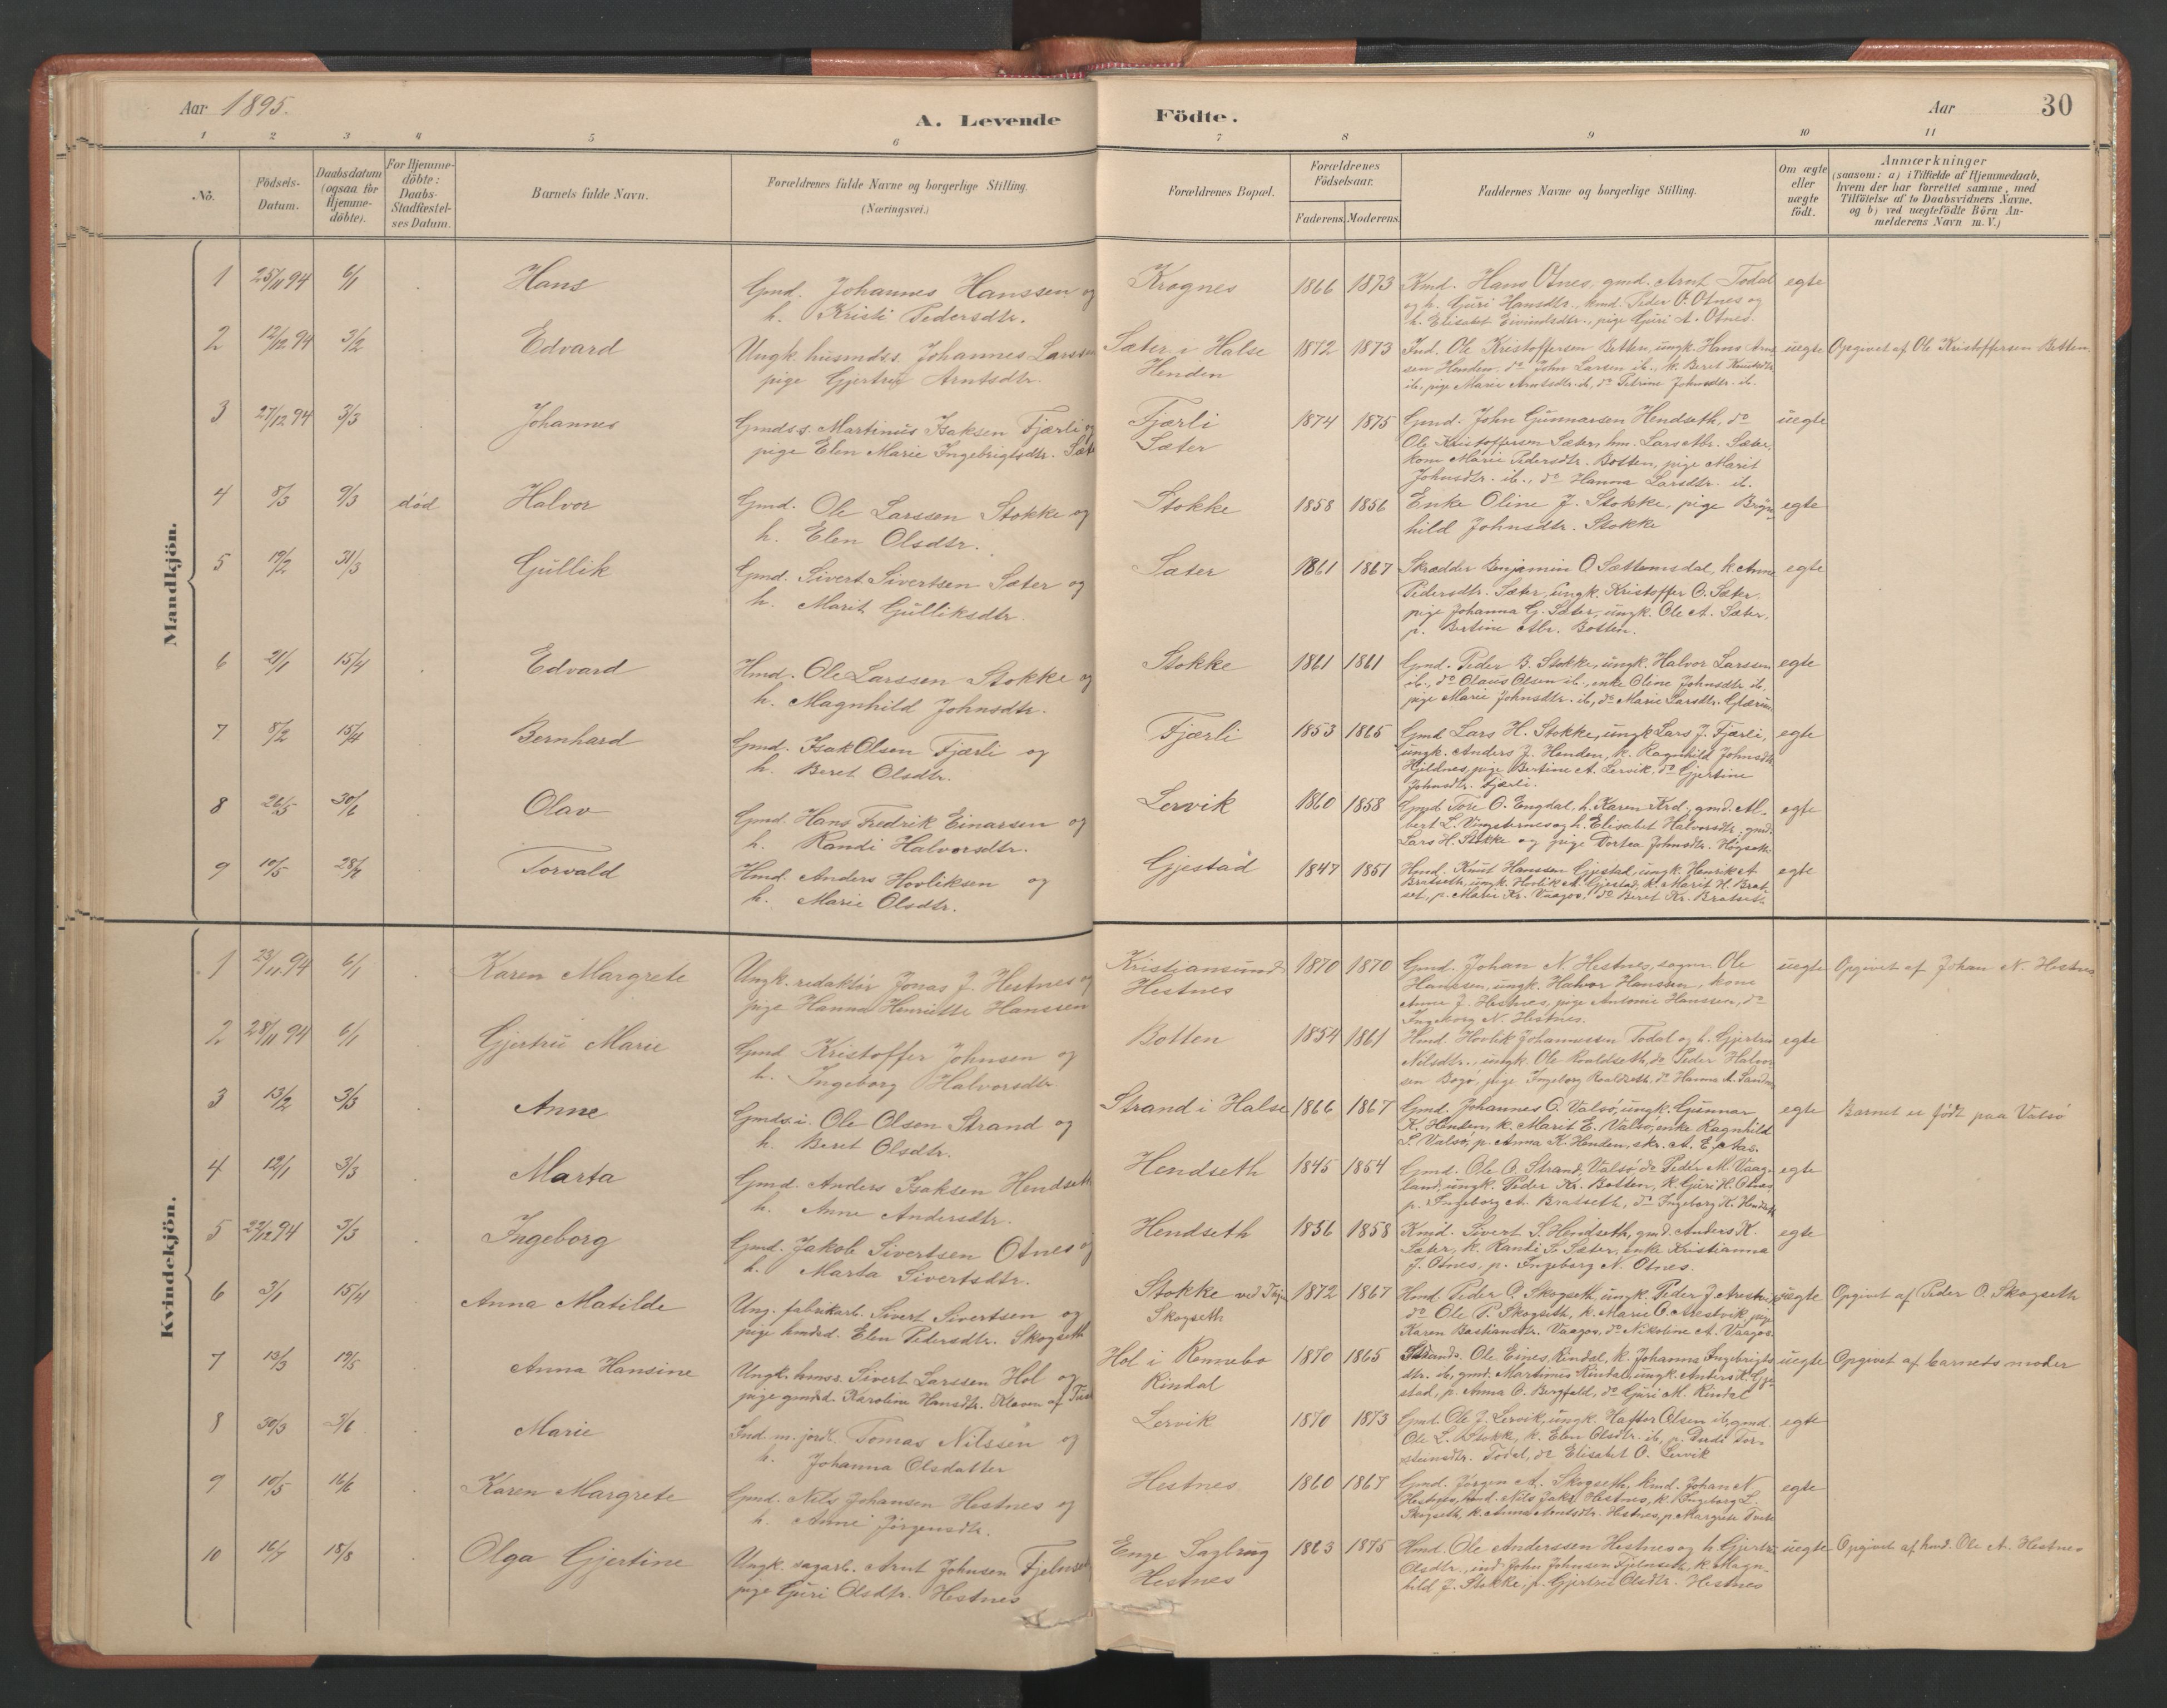 Aar 1895. A. Levende Födte. Aar 30
1 2 3 4 5 6 7 8 9 10 11
No.
Födsels-Datum.
Daabsdatum (ogsaa for Hjemme-döbte).
For Hjemme-döbte: Daabs-Stadfæstel-ses Datum.
Barnets fulde Navn.
Forældrenes fulde Navne og borgerlige Stilling.
(Næringsvei.)
Forældrenes Bopæl.
Forældrenes Födselsaar.
Faderens. Moderens.
Faddernes Navne og borgerlige Stilling.
Om ægte eller uægte födt.
Anmærkninger
(saasom: a) i Tilfælde af Hjemmedaab,
hvem der har forrettet samme, med
Tilföielse af to Daabsvidners Navne.
og b) ved uægtefödte Börn An-
melderens Navn m. V.)
Mandkjön.
1 25/11 94 6/1 Hans Gmd. Johannes Hanssen og
h. Kristi Pedersdtr.
Krognes 1866 1873 Kmd. Hans Otnes, gmd. Arnt Todal
og h. Guri Hansdtr., kmd. Peder O. Otnes og
h. Elisabet Eivindsdtr., pige Guri A. Otnes.
egte
2 12/12 94 3/2 Edvard Ungk. husmdss. Johannes Larssen
pige Gjertrü Arntsdtr.
Sæter i Halse
Henden
1872 1873 Ind. Ole Kristoffersen Botten, ungk. Hans Arnt
sen Henden, do John Larsen ib., k. Beret Knudsdtr
ib., pige Marie Arntsdtr. ib, do Petrine Johnsdtr. ib.
uegte Opgivet af Ole Kristoffersen Botten.
3 27/12 94 3/3 Johannes Gmdss. Martinus Isaksen Fjærli og
pige Elen Marie Ingebrigtsdtr. Sæter
Fjærli
Sæter
1874 1875 Gmd. John Gunnarsen Hendseth, do
Ole Kristoffersen Sæter, hm. Lars Abr. Sæter,
kone Marie Pedersdtr. Botten, pige Marit
Johnsdtr. ib., do Hanna Larsdtr. ib.
uegte
4 8/3 9/3 död Halvor Gmd. Ole Larssen Stokke og
h. Elen Olsdtr.
Stokke 1858 1856 Enke Oline J. Stokke, pige Bryn-
hild Johnsdtr. Stokke
egte
5 19/2 31/3 Gullik Gmd. Sivert Sivertsen Sæter og
h. Marit Gulliksdtr.
Sæter 1861 1867 Skrædder Benjamin O. Sættemsdal, k. Anne
Pedersdtr. Sæter, ungk. Kristoffer O. Sæter.
pige Johanna G. Sæter, ungk. Ole A. Sæter,
p. Bertine Abr. Botten.
egte
6 21/1 15/4 Edvard Hmd. Ole Larssen Stokke og
h. Magnhild Johnsdtr.
Stokke 1861 1861 Gmd. Peder B. Stokke, ungk. Halvor Larssen
ib., do Olaus Olsen ib., enke Oline Johnsdtr ib,
pige Marie Johnsdtr. ib, do Marie Larsdtr. Glærum
egte
7 8/2 15/4 Bernhard Gmd. Isak Olsen Fjærli og
h. Beret Olsdtr.
Fjærli 1853 1865 Gmd Lars H. Stokke, ungk Lars J. Fjærli,
ungk. Anders J. Henden, k. Ragnhild Johnsdtr
Hjildnes, pige Bertine A. Lervik, do Gjertine
Johnsdtr. Fjærli.
egte
8 26/5 30/6 Olav Gmd. Hans Fredrik Einarsen og
h. Randi Halvorsdtr.
Lervik 1860 1858 Gmd Tore O. Engdal, h. Karen Krd, gmd. Al-
bert L. Vingsternes og h. Elisabet Halvorsdtr, gmd.
Lars H. Stokke og pige Dortea Johnsdtr. Högseth
egte
9 10/5 28/7 Torvald Hmd. Anders Hovliksen og
h. Marie Olsdtr.
Gjestad 1847 1851 Hmd. Knut Hanssen Gjestad, ungk. Henrik A
Bratseth, ungk. Hovlik A. Gjestad, k. Marit H. Brat-
set, p. Marie Kr. Vaagos, do Beret Kr. Bratset
egte
Kvindekjön.
1 23/11 94 6/1 Karen Margrete Ungk. redaktör Jonas J. Hestnes og
pige Hanna Henriette Hanssen
Kristiansund
Hestnes
1870 1870 Gmd. Johan N. Hestnes, sagm. Ole
Hanssen, ungk. Halvor Hanssen, kone
Anne J. Hestnes, pige Antonie Hanssen, do
Ingeborg N. Hestnes.
uegte Opgivet af Johan N. Hestnes
2 28/11 94 6/1 Gjertru Marie Gmd Kristoffer Johnsen og
h. Ingeborg Halvorsdtr
Botten 1854 1861 Hmd Hovlik Johannessen Todal og h. Gjertru
Nilsdtr., ungk. Ole Roaldseth, do Peder Halvor
sen Bogö, pige Ingeborg Roaldseth, do Hanna A. Sandnes
egte
3 13/2 3/3 Anne Gmds. i. Ole Olsen Strand og
h. Beret Olsdtr.
Strand i Halse 1866 1867 Gmd. Johannes O. Valsö, ungk. Gunnar
K. Henden, k. Marit E. Valsö, enke Ragnhild
L. Valsö, p. Anna K. Henden, skr. A. E. Aas.
egte Barnet er födt paa Valsö
4 12/1 3/3 Marta Gmd. Anders Isaksen Hendseth
h. Anne Andersdtr.
Hendseth 1845 1854 Gmd. Ole O. Strand, Valsö do Peder M. Vaag-
land, ungk. Peder Kr. Botten, k. Guri H. Otnes
p. Ingeborg A. Bratseth, do Ingeborg K. Hendseth
egte
5 22/12 94 3/3 Ingeborg Gmd. Jakob Sivertsen Otnes og
h. Marta Sivertsdtr.
Hendseth 1856 1858 Kmd. Sivert S. Hendseth, gmd. Anders K.
Sæter, k. Randi S. Sæter, enke Kristianna
J. Otnes, p. Ingeborg N. Otnes.
egte
6 3/1 15/4 Anna Matilde Ung. fabrikarb. Sivert Sivertsen og
pige hmdsd. Elen Pedersdtr. Skogseth
Stokke
Skogseth
1872 1867 Hmd Peder O. Skogseth, ungk. Peder J. Arestvik
do Ole P. Skogseth, k. Marie O. Arestvik, pige
Karen Bastiansdtr. Vaagos, do Nikoline A. Vaagos.
uegte Opgivet af Peder O. Skogseth
7 13/3 19/5 Anna Hansine Ungk. hmss. Sivert Larssen Hol og
pige gmdsd. Karoline Hansdtr. Kleven af
Hol i
Rindal
1870 1865 Ole Eines, Rindal, k. Johanna Ingebrigts
dtr. ib, gmd. Martinus Rindal, ungk. Anders K. Gje-
stad, p. Anna O. Bergfald, do Guri M. Rindal
uegte Opgivet af barnets moder
8 30/3 3/6 Marie Ind. m. jord. Tomas Nilssen og
h. Johanna Olsdatter
Lervik 1870 1873 Gmd. Ole J. Lervik, ungk. Haftor Olsen ib, gmd.
Ole L. Stokke, k. Elen Olsdtr. ib, p. Tor-
steinsdtr. Todal, do Elisabet O. Lervik
egte
9 10/5 16/6 Karen Margrete Gmd. Nils Johansen Hestnes og
h. Anne Jörgensdtr.
Hestnes 1860 1867 Gmd. Jörgen A. Skogseth, kmd. Johan N
Hestnes, kmd. Nils Jaks Hestnes, k. Ingeborg L.
Skogseth, k. Anna Arntsdtr. Hestnes, p. Margrete
egte
10 16/7 18/8 Olga Gjertine Ungk. sagarb. Arnt Johnsen Fjelnset
pige Guri Olsdtr. Hestnes
Enge Sagbrug
Hestnes
1863 1875 Hmd. Ole Anderssen Hestnes og h. Gjertru
Olsdtr., ind. John Johnsen Fjelnseth, k. Magn-
hild J. Stokke, p. Gjertru Olsdtr. Hestnes
uegte Opgivet af hmd. Ole A. Hestnes